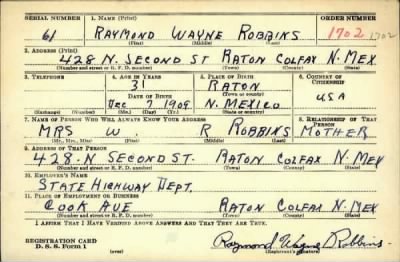 SERIAL NUMBER 1. NAME (Print) ORDER NUMBER
61 RAYMOND WAYNE ROBBINS 1702 1702
(First) (Middle) (Last)
2. ADDRESS (Print)
428 N. SECOND ST RATON COLFAX N. MEX
(Number and street or R. F. D. number) (Town) (County) (State)
3. TELEPHONE 4. AGE IN YEARS 5. PLACE OF BIRTH 6. COUNTRY OF CITIZENSHIP
31 RATON
DATE OF BIRTH (Town or county)
DEC 7 1909 N. MEXICO USA
(Exchange) (Number) (Mo.) (Day) (Yr.) (State or country)
7. NAME OF PERSON WHO WILL ALWAYS KNOW YOUR ADDRESS 8. RELATIONSHIP OF THAT PERSON
MRS W. R ROBBINS MOTHER
(Mr., Mrs., Miss) (First) (Middle) (Last)
9. ADDRESS OF THAT PERSON
428 - N SECOND ST. RATON COLFAX N. MEX
(Number and street or R. F. D. number) (Town) (County) (State)
10. EMPLOYER'S NAME
STATE HIGHWAY DEPT.
11. PLACE OF EMPLOYMENT OR BUSINESS
COOK AVE RATON COLFAX N. MEX
(Number and street or R. F. D. number) (Town) (County) (State)
I AFFIRM THAT I HAVE VERIFIED ABOVE ANSWERS AND THAT THEY ARE TRUE.
REGISTRATION CARD
D. S. S. Form 1 (over) Raymond Wayne Robbins
(Registrant's signature)